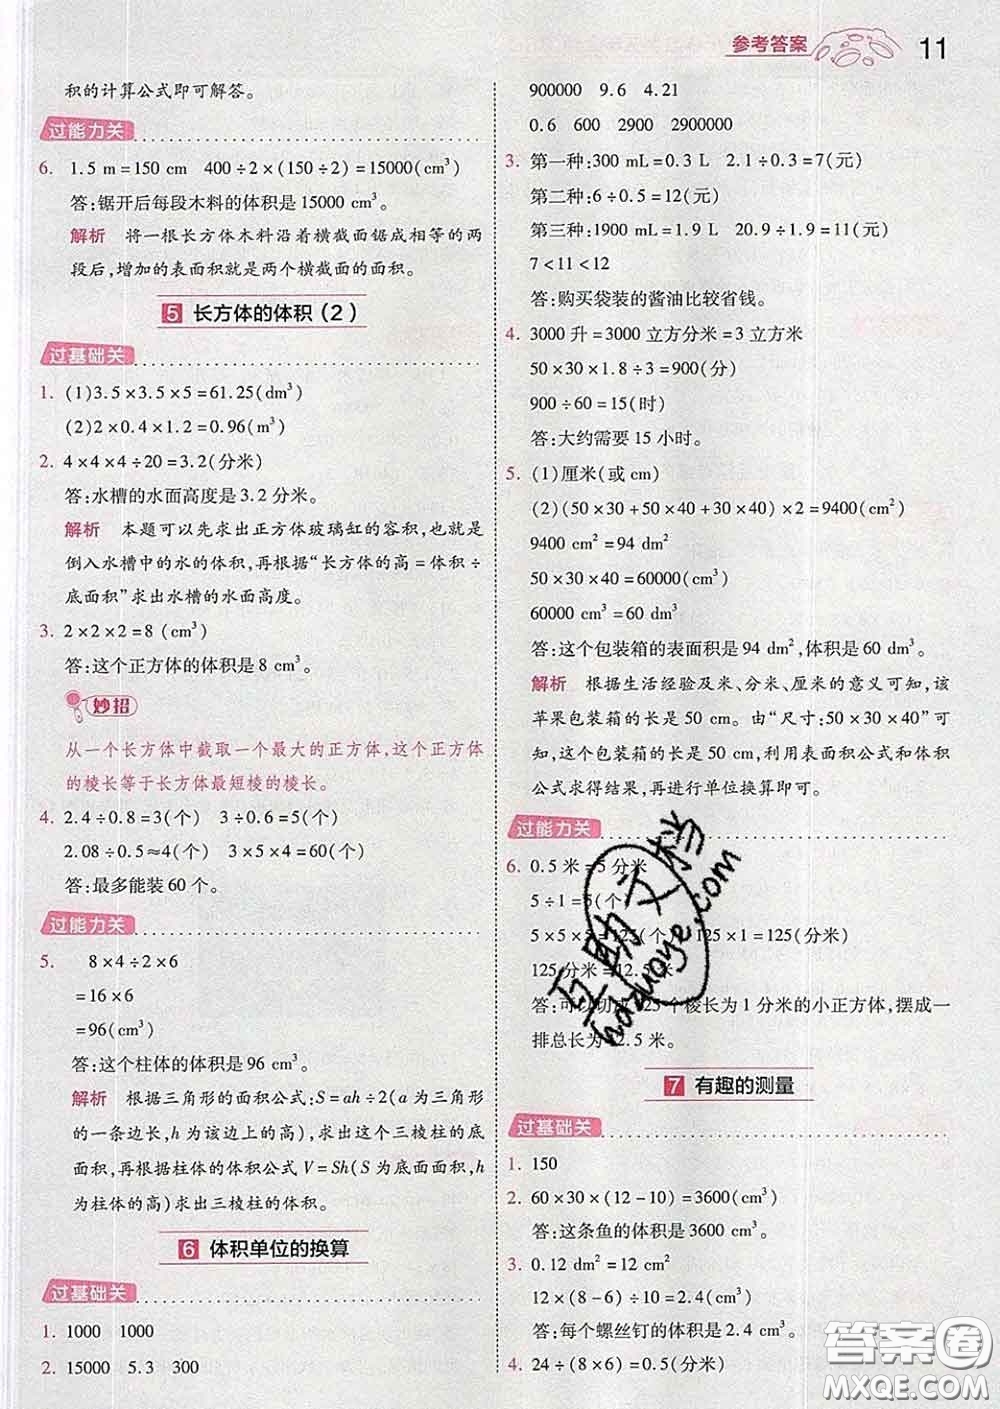 参考答案 11
积的计算公式即可解答。
过能力关
6. 1.5 m=150 cm 400÷2×(150÷2)=15000(cm³)
答:锯开后每段木料的体积是 15000 cm³。
解析 将一根长方体木料沿着横截面锯成相等的两
段后,增加的表面积就是两个横截面的面积。
5 长方体的体积(2)
过基础关
1. (1)3.5×3.5×5=61.25(dm³)
(2)2×0.4×1.2=0.96(m³)
2. 4×4×4÷20=3.2(分米)
答:水槽的水面高度是 3.2 分米。
解析 本题可以先求出正方体玻璃缸的容积,也就是
倒入水槽中的水的体积,再根据“长方体的高=体积÷
底面积”求出水槽的水面高度。
3. 2×2×2=8 (cm³)
答:这个正方体的体积是 8 cm³。
妙招
从一个长方体中截取一个最大的正方体,这个正方体
的棱长等于长方体最短棱的长。
4. 2.4÷0.8=3(个) 3÷0.6=5(个)
2.08÷0.5≈4(个) 3×5×4=60(个)
答:最多能装 60 个。
过能力关
5. 8×4÷2×6
=16×6
=96(cm³)
答:这个柱体的体积是 96 cm³。
解析 根据三角形的面积公式:S=ah÷2(a 为三角形
的一条边长,h 为该边上的高),求出这个三棱柱的底
面积,再根据柱体的体积公式 V=Sh(S 为底面面积,h
为柱体的高)求出三棱柱的体积。
6 体积单位的换算
过基础关
1. 1000 1000
2. 15000 5.3 300
900000 9.6 4.21
0.6 600 2900 2900000
3. 第一种:300 mL=0.3 L 2.1÷0.3=7(元)
第二种:6÷0.5=12(元)
第三种:1900 mL=1.9 L 20.9÷1.9=11(元)
7<11<12
答:购买袋装的酱油比较省钱。
4. 3000 升=3000 立方分米=3 立方米
50×30×1.8÷3=900(分)
900÷60=15(时)
答:大约需要 15 小时。
5. (1)厘米(或 cm)
(2)(50×30+50×40+30×40)×2=9400(cm²)
9400 cm²=94 dm²
50×30×40=60000(cm³)
60000 cm³=60 dm³
答:这个包装箱的表面积是 94 dm²,体积是 60 dm³。
解析 根据生活经验及米、分米、厘米的意义可知,该
苹果包装箱的长是 50 cm。由“尺寸:50×30×40”可
知,这个包装箱的长是 50 cm,利用表面积公式和体积
公式求得结果,再进行单位换算即可。
过能力关
6. 0.5 米=5 分米
5÷1=5(个)
5×5×5=125(个) 125×1=125(分米)
125 分米=12.5 米
答:可以切成 125 个棱长为 1 分米的小正方体,摆成一
排总长为 12.5 米。
7 有趣的测量
过基础关
1. 150
2. 60×30×(12-10)=3600(cm³)
答:这条鱼的体积是 3600 cm³。
3. 0.12 dm²=12 cm²
12×(8-6)÷10=2.4(cm³)
答:每个螺丝钉的体积是 2.4 cm³。
4. 24÷(8×6)=0.5(分米)
互助文档
hdzuoye.com
答案圈
MXQE.COM